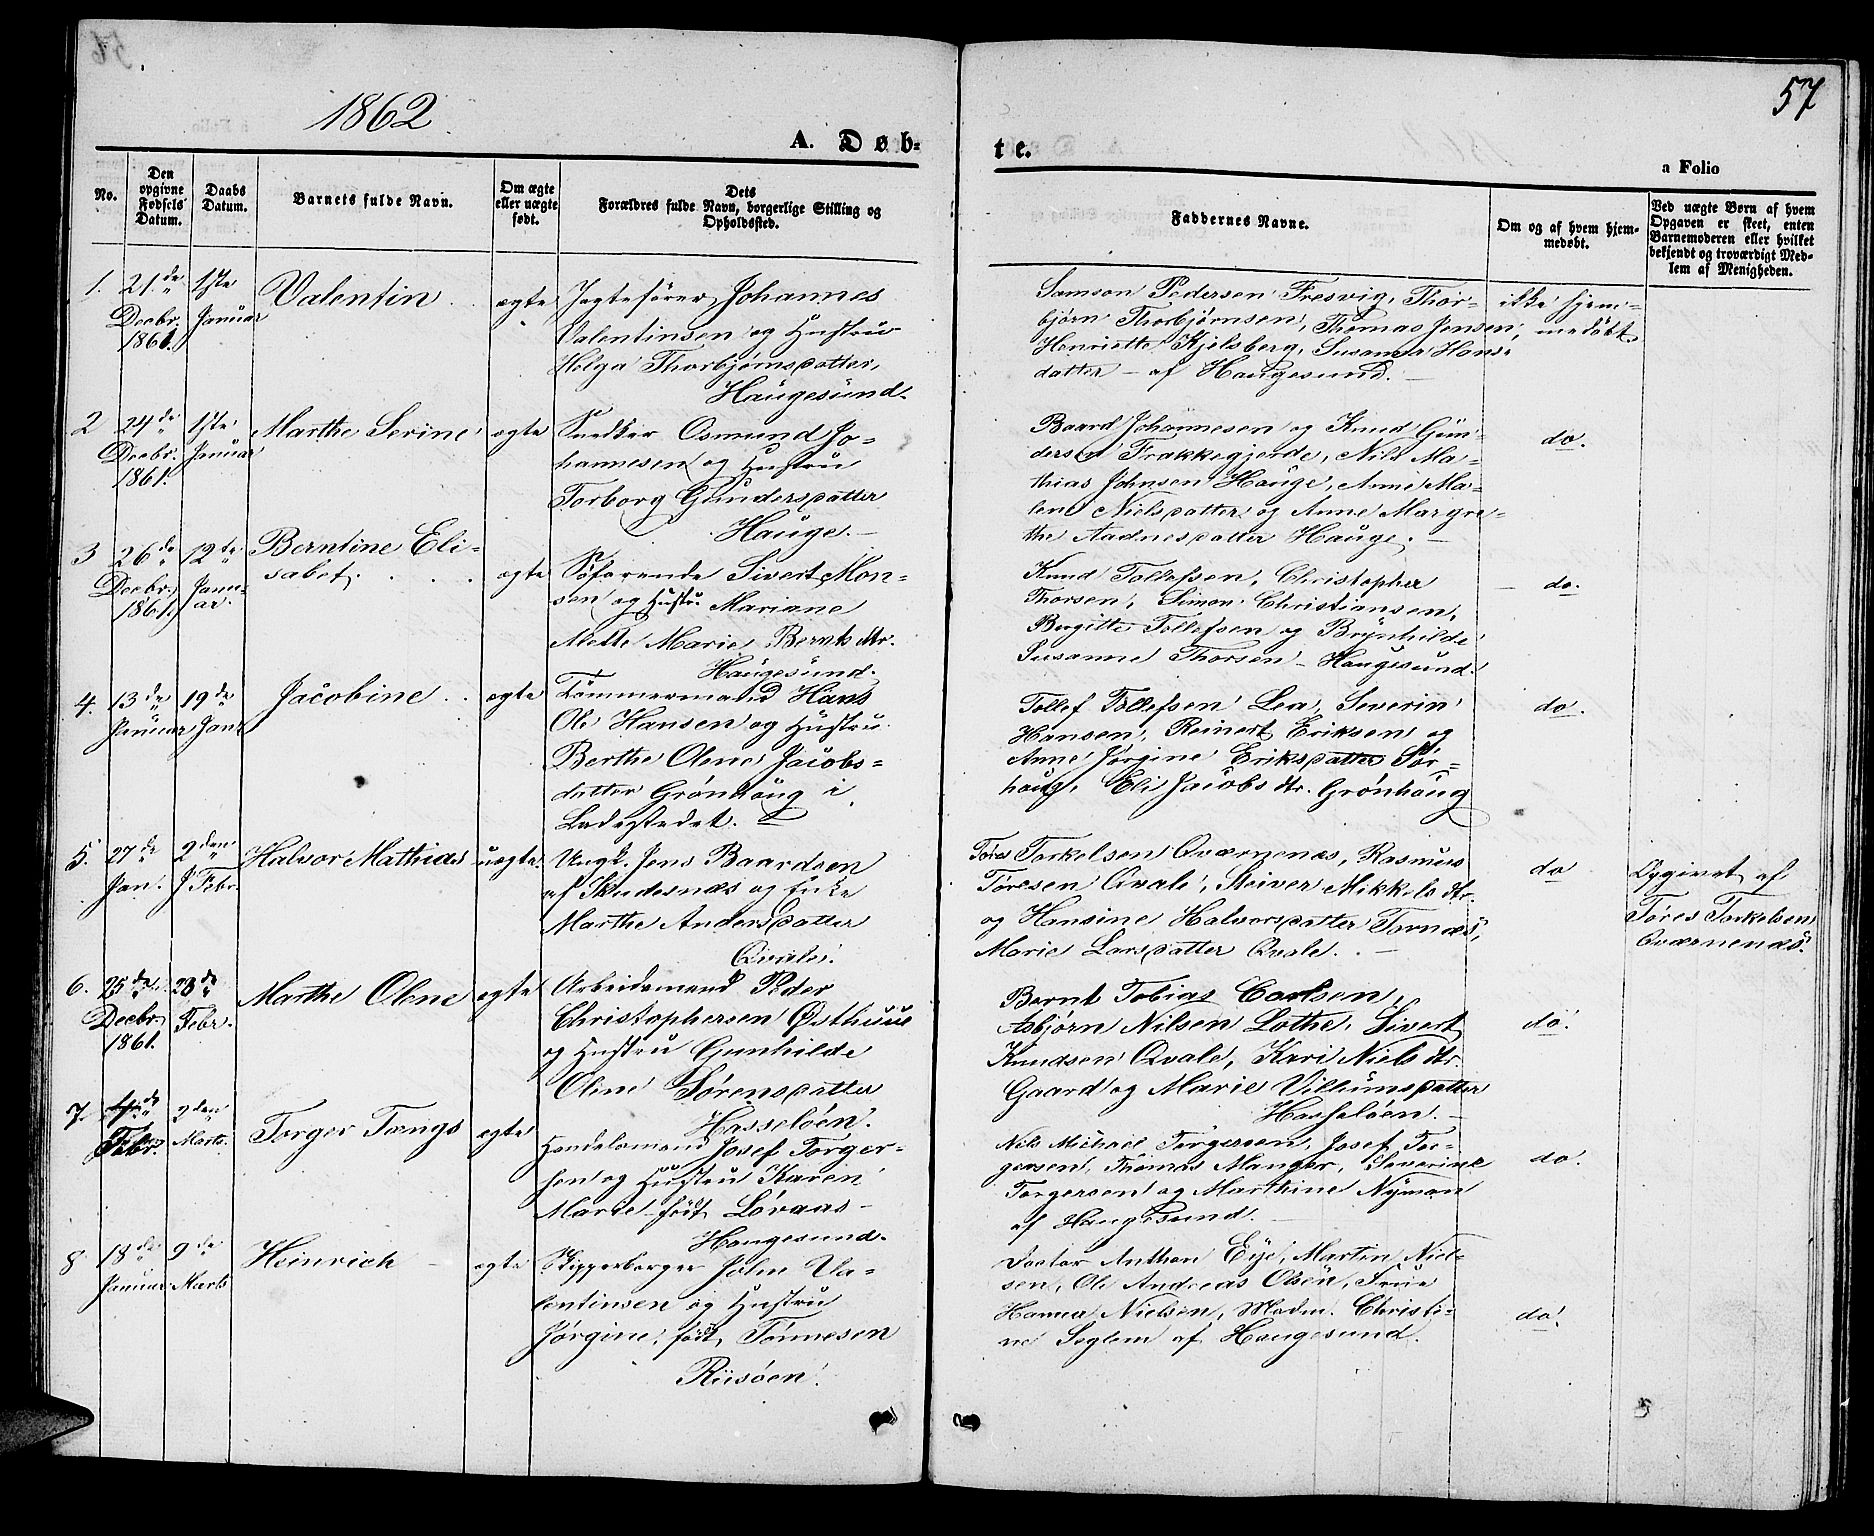 1862
57
A. Døb-
te.
a Folio
No.
Den opgivne Fødsels Datum.
Daabs Datum.
Barnets fulde Navn.
Om ægte eller uægte født.
Dets Forældres fulde Navn, borgerlige Stilling og Opholdssted.
Faddernes Navne.
Om og af hvem hjem-
medøbt.
Ved uægte Børn af hvem
Opgaven er skeet, enten
Barnemoderen eller hvilket
bekjendt og troværdigt Med-
lem af Menigheden.
1.
21de
Decbr.
1861.
1ste
Januar
Valentin
ægte
Jagtefører Johannes
Valentinsen og Hustru
Helga Thorbjørnsdatter,
Haugesund.
Samson Pedersen Fresvig, Thor-
bjørn Thorbjørnsen, Thomas Jensen,
Henriette Kjelsberg, Susanna Hans-
datter – af Haugesund.
ikke hjem-
medøbt.
2
24de
Decbr.
1861.
1ste
Januar
Marthe Serine
ægte
Snedker Osmund Jo-
hannesen og Hustru
Torborg Gundersdatter
Hauge.
Baard Johannesen og Knud Gun-
dersen Frakkegjerde, Nils Ma-
thias Johnsen Hauge, Anne Ma-
lene Nielsdatter og Anne Margre-
the Aadnesdatter Hauge.
do.
3
26de
Decbr.
1861.
12te
Janu-
ar.
Berntine Eli-
sabet.
ægte
Søfarende Sivert Mon-
sen og Hustr. Mariane
Mette Marie Berntsdtr.
Haugesund.
Knud Tollefsen, Christopher
Thorsen, Simon Christiansen,
Birgitte Tollefsen og Brynhilde
Susanne Thorsen – Haugesund.
do.
4.
13de
Januar
19de
Jan.
Jacobine
ægte
Tømmermand Hans
Ole Hansen og Hustru
Berthe Olene Jacobs-
datter Grønhaug i
Ladestedet.
Tollef Tollefsen Lea, Severin
Hansen, Reinert Eriksen og
Anne Jørgine Eriksdatter Sør-
haug, Eli Jacobsdtr. Grønhaug
do.
5.
27de
Jan.
2den
Febr.
Halvor Mathias
uægte.
Ungk. Jens Baardsen
af Skudesnæs og Enke
Marthe Andersdatter
Qvale.
Tøres Torkelsen Qværnenæs, Rasmus
Tøresen Qvale, Steiver Mikkelsdtr.
og Hansine Halvorsdatter Tornæs,
Marie Larsdatter Qvale.
do
Opgivet af
Tøres Torkelsen
Qværnenæs.
6.
25de
Decbr.
1861.
23de
Febr.
Marthe Olene
ægte
Arbeidsmand Peder
Christophersen Østhuus
og Hustru Gunhilde
Oline Sørensdatter
Hasseløen.
Bernt Tobias Carlsen,
Asbjørn Nilsen Lothe, Sivert
Knudsen Qvale, Kari Nielsdtr.
Gaard og Marie Villumsdatter
Hasseløen.
do.
7.
4de
Febr.
2den
Marts.
Torger Tangs
ægte
Handelsmand Josef Torger-
sen og Hustru Karen
Marie født Løvaas –
Haugesund.
Nils Michael Torgersen, Josef Tor-
gersen, Thomas Manger, Severine
Torgersen og Marthine Nyman
af Haugesund.
do.
8
18de
Januar
9de
Marts
Heinrich
ægte
Skipperborger John Va-
lentinsen og Hustru
Jørgine, født Tønnesen
Risøen.
Doctor Anthon Eye, Martin Niel-
sen, Ole Andreas Olsen, Frue
Hanna Nielsen, Madm. Christi-
ne Seglem af Haugesund.
do.